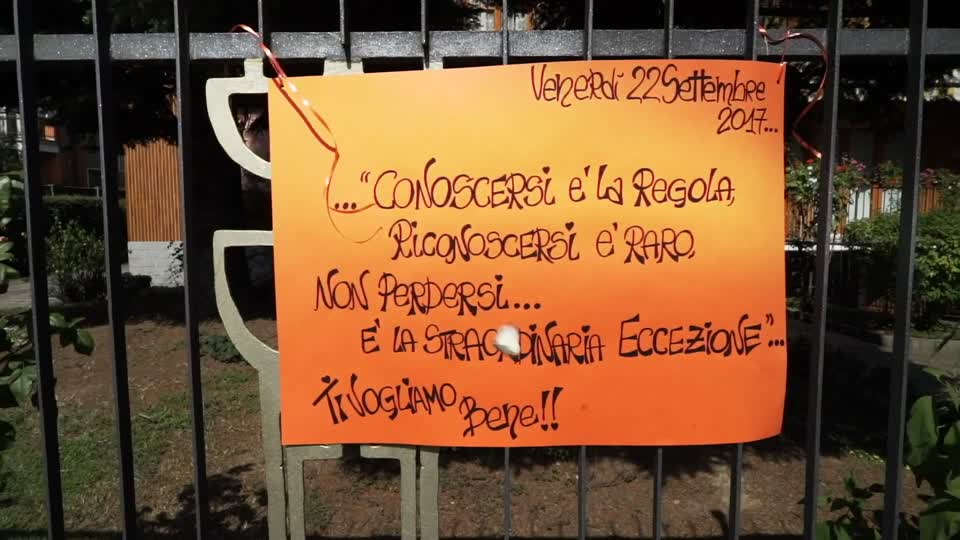 Venerdì 22 Settembre
2017...
..."Conoscersi e' la Regola,
Riconoscersi e' raro,
Non perdersi...
E' la Eccezione"...
Ti vogliamo
Bene!!